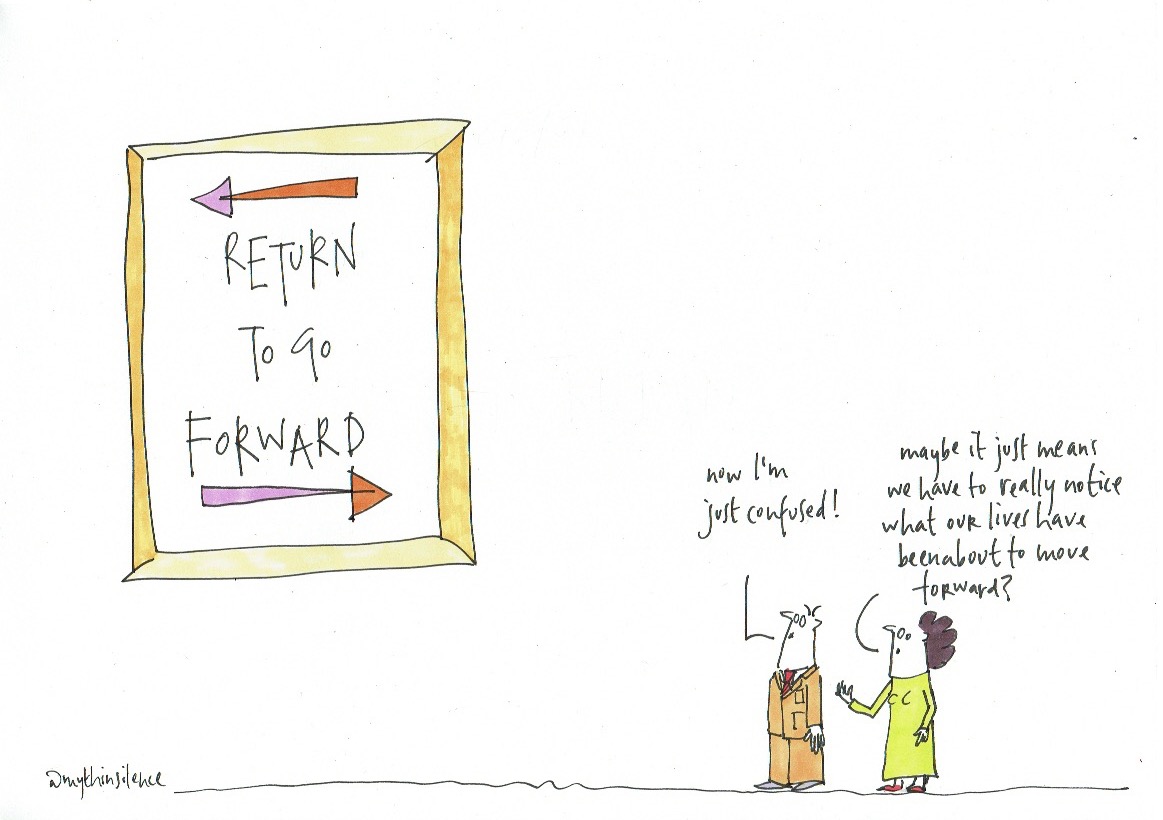 RETURN
To go
FORWARD
now I'm
just confused!
maybe it just means
we have to really notice
what our lives have
beenabout to move
forward?
@mythinsilence